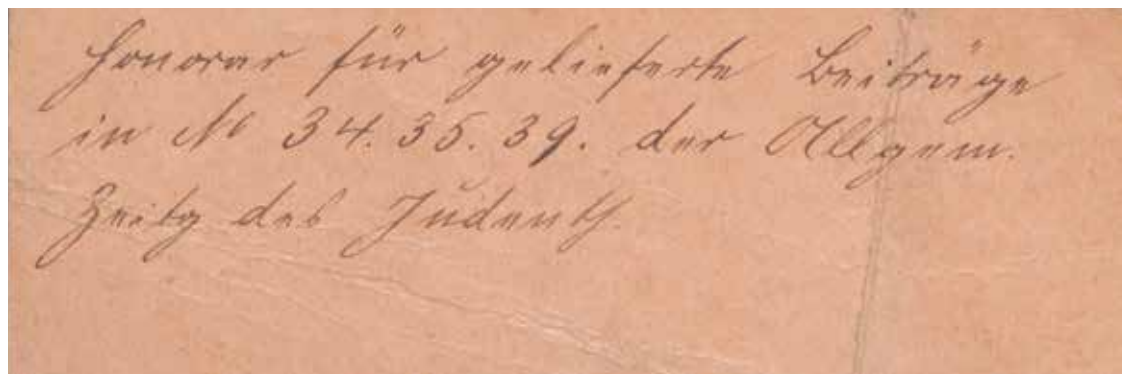 Honorar für gelieferte Beiträge
in No 34. 35. 39. der Allgem.
Zeitg des Judenth.